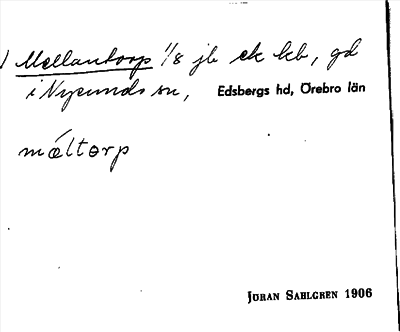 Mellantorp 1/8 jb ek kb, gd
i Nysunds sn, Edsbergs hd, Örebro län
mæ̂ltɵrp
JÖRAN SAHLGREN 1906